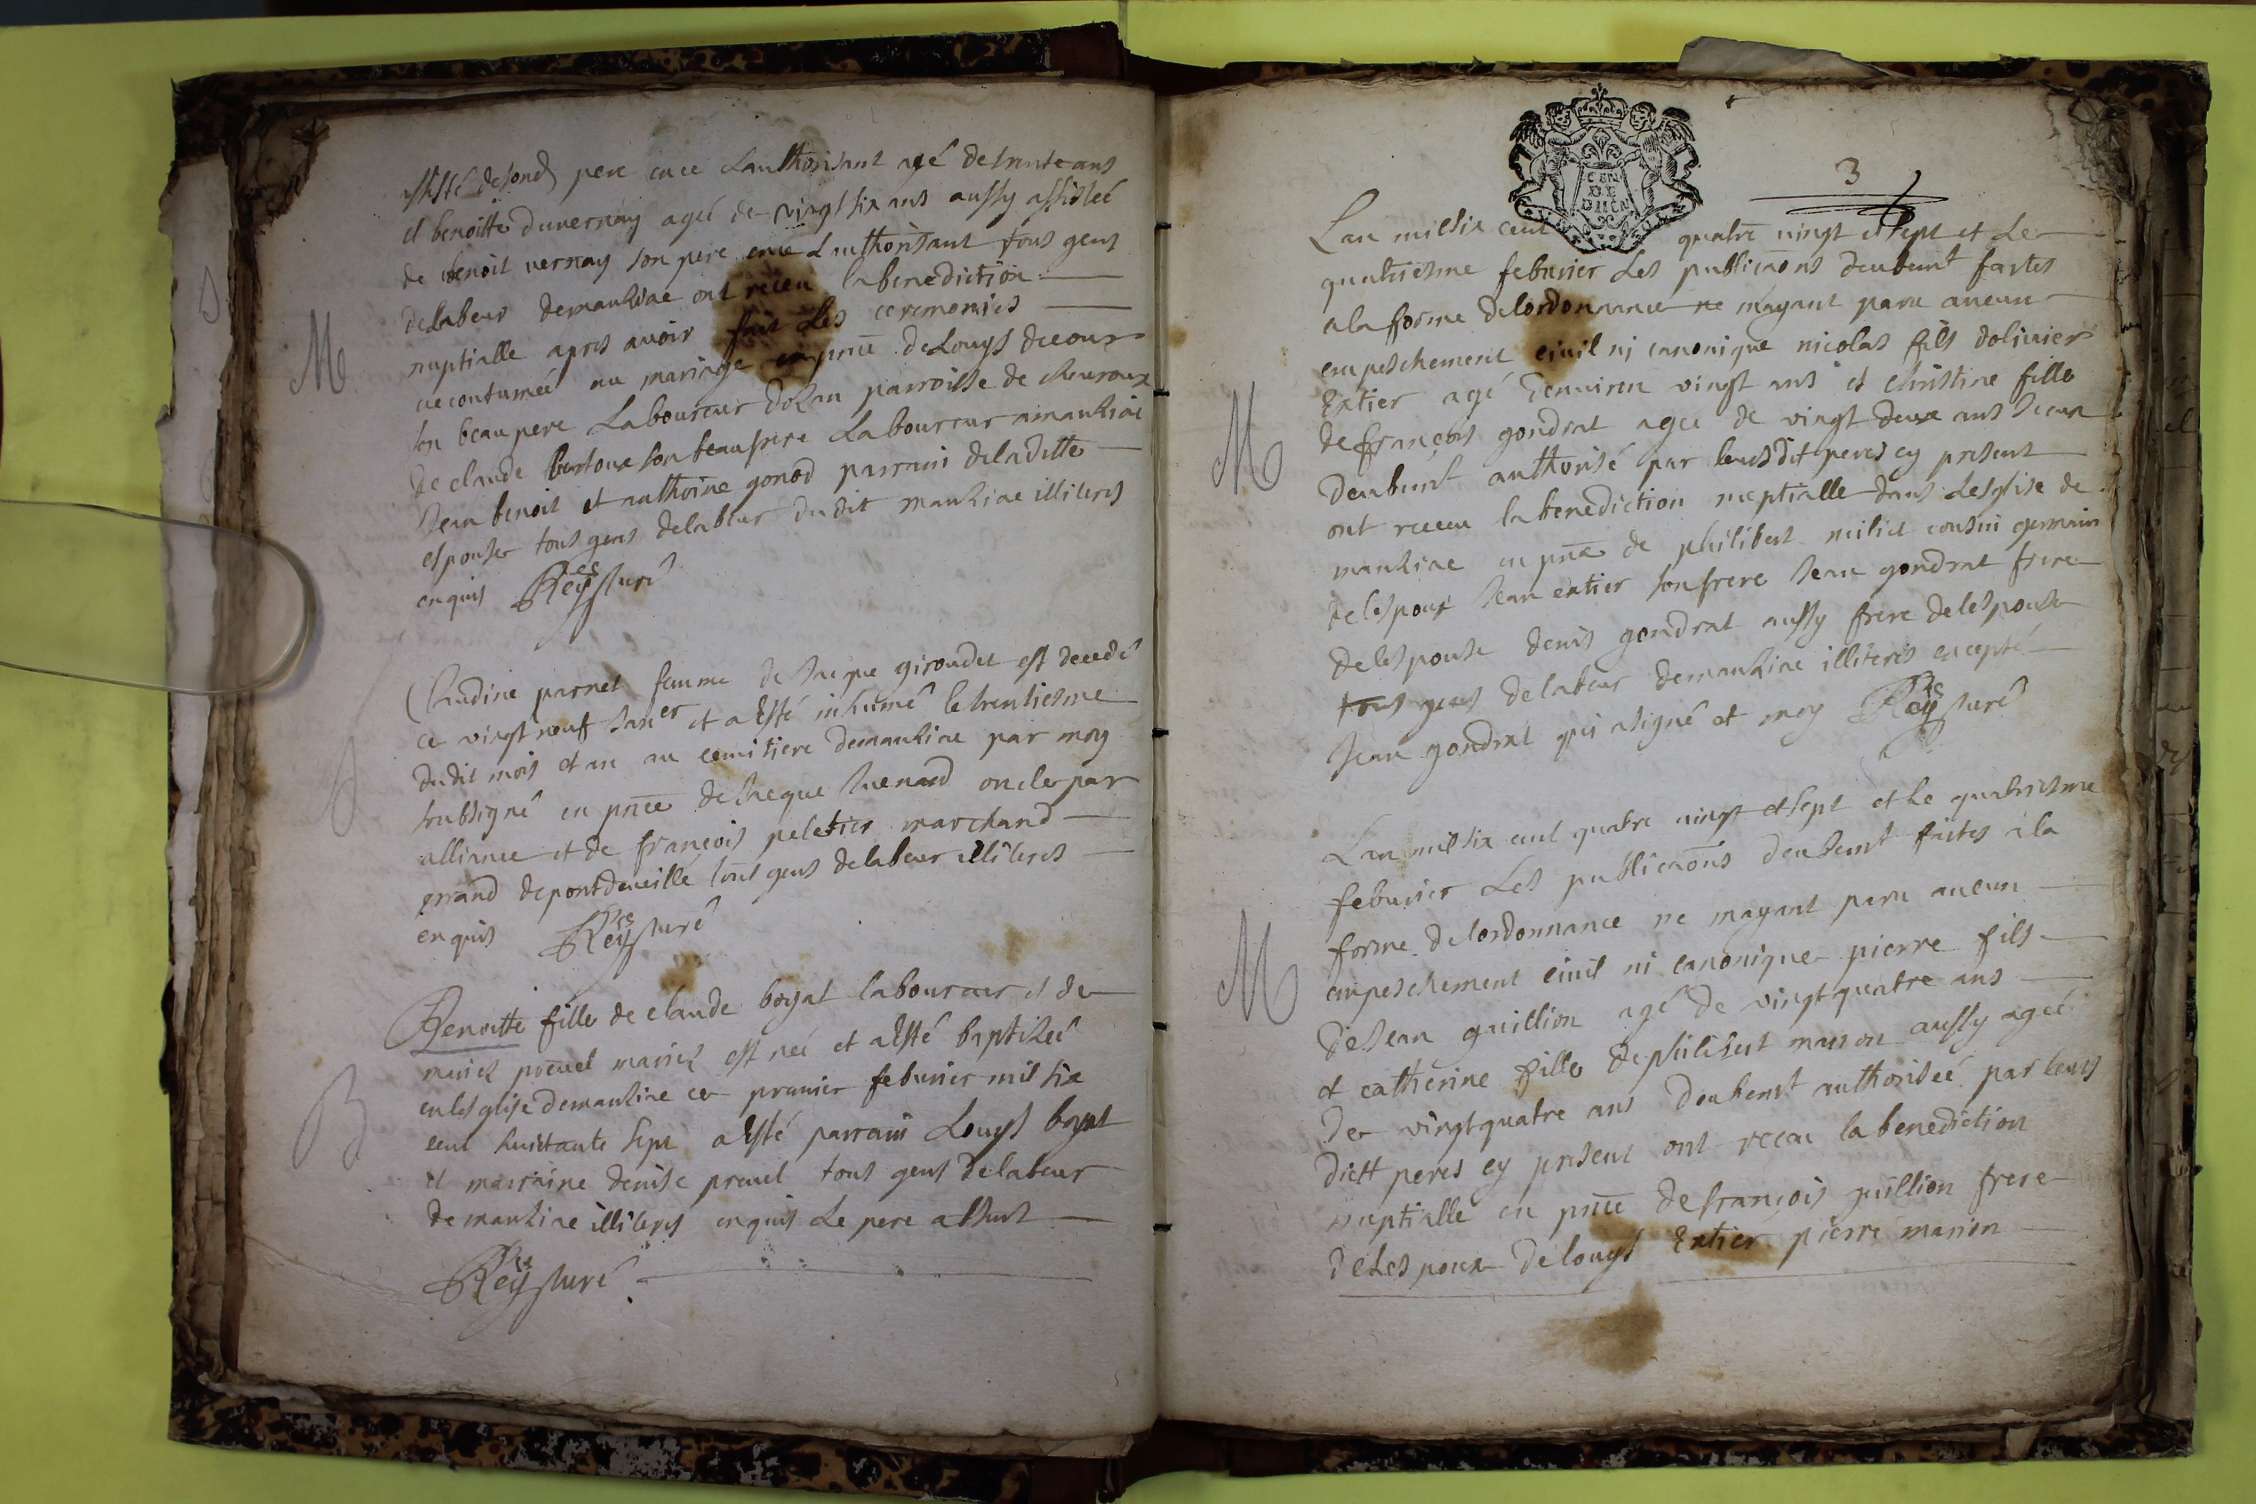 assisté de sond pere en ce Lauthorisant agé de trente ans
et benoitte duvernay ageé de vingt six ans aussy assisteé
de benoit vernay son pere en ce Lauthorisant tous gens
M
de labeur de manziac ont receu la benediction
nuptialle apres avoir fait Les ceremonies
accoutumeé au mariage en pnce de Louys decour
son beau pere Laboureur dozan parroisse de chevroux
de claude bertoux son beaufrere Laboureur a manziac
Jean benoit et anthoine gonod parrain de laditte
espouse tous gens de labeur dudit manziac illiteres
enquis Rey Curé
S
Claudine parnet femme de Jacque giroudet est decedé
ce vingt neuf Janer et a esté inhumé le trentiesme
dudit mois et an au cemitiere de manziac par moy
soubsigné en pnce de Jacque Juenard oncle par
alliance et de françois peletier marchand
grand de pontdeveille tous gens de labeur illiteres
enquis Rey Curé
B
Benoitte fille de claude boyat laboureur et de
mariez est neé et a esté baptizeé
en lesglise de manziac ce premier feburier mil six
cent huittante sept a esté parrain Louys boyat
et marraine denise prevel tous gens de labeur
de manziac illiteres enquis Le pere absent
Rey Curé
CEN
DE
DIICN
3
Lan mil six cent quatre vingt et sept et Le
quatriesme feburier Les publicaons deubemt faites
a la forme de lordonnance ne mayant paru aucun
empeschement civil ni canonique nicolas fils dolivier
M
Extier agé denviron vingt ans et christine fille
de françois gondrat ageé de vingt deux ans Jceux
deubemt authorisé par leursdit peres cy present
ont receu la benediction nuptialle dans Lesglise de
manziac en pnce de philibert milict cousin germain
de lespoux Jean extier son frere Jean gondrat frere
de lespouse denis gondrat aussy frere de lespouse
tous gens de labeur de manziac illiteres excepté
Jean gondrat qui a signé et moy Rey Curé
Lan mil six cent quatre vingt et sept et Le quatriesme
feburier Les publicaons deubemt faites a la
forme de lordonnance ne mayant paru aucun
M
empeschement civil ni canonique pierre fils
de Jean guillion agé de vingt quatre ans
et catherine fille de philibert manion aussy ageé
de vingt quatre ans deubemt authoriseé par leurs
ditt peres cy present ont receu la benediction
nuptialle en pnce de françois guillion frere
de Lespoux de louys Extier pierre manion